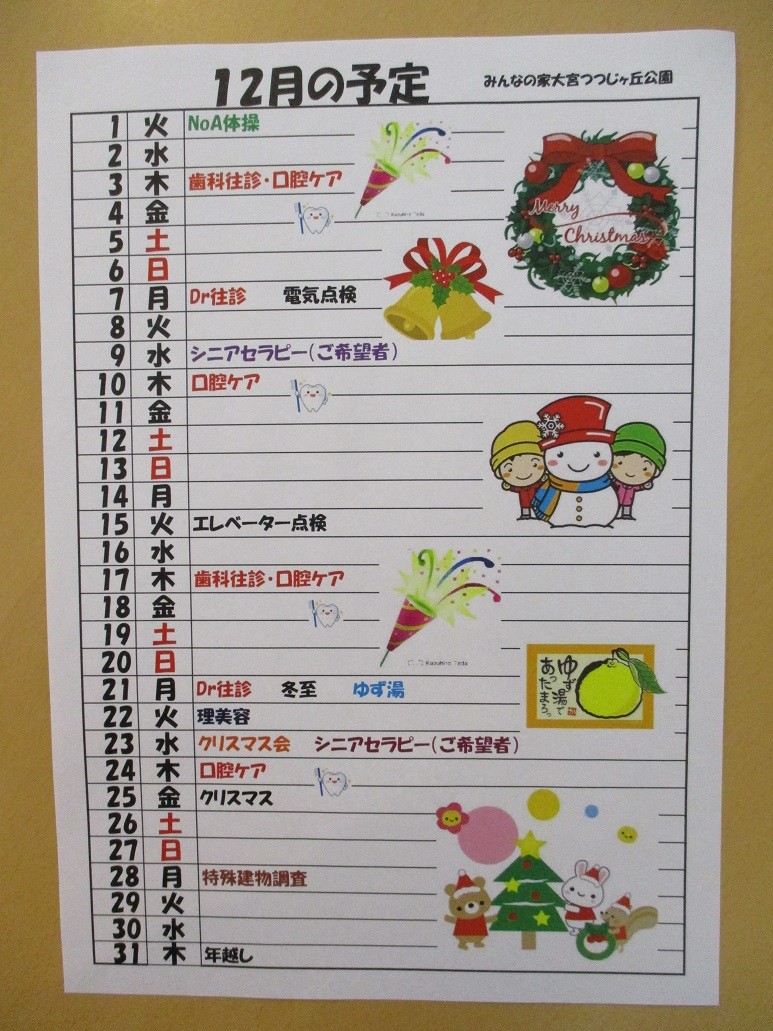 12月の予定 みんなの家大宮つつじヶ丘公園
1 火 NoA体操
2 水
3 木 歯科往診・口腔ケア
4 金
5 土
6 日
7 月 Dr往診 電気点検
8 火
9 水 シニアセラピー(ご希望者)
10 木 口腔ケア
11 金
12 土
13 日
14 月
15 火 エレベーター点検
16 水
17 木 歯科往診・口腔ケア
18 金
19 土
20 日
21 月 Dr往診 冬至 ゆず湯
22 火 理美容
23 水 クリスマス会 シニアセラピー(ご希望者)
24 木 口腔ケア
25 金 クリスマス
26 土
27 日
28 月 特殊建物調査
29 火
30 水
31 木 年越し
Merry
Christmas
Kazuhiro Tada
ゆず湯で
あったまろっ